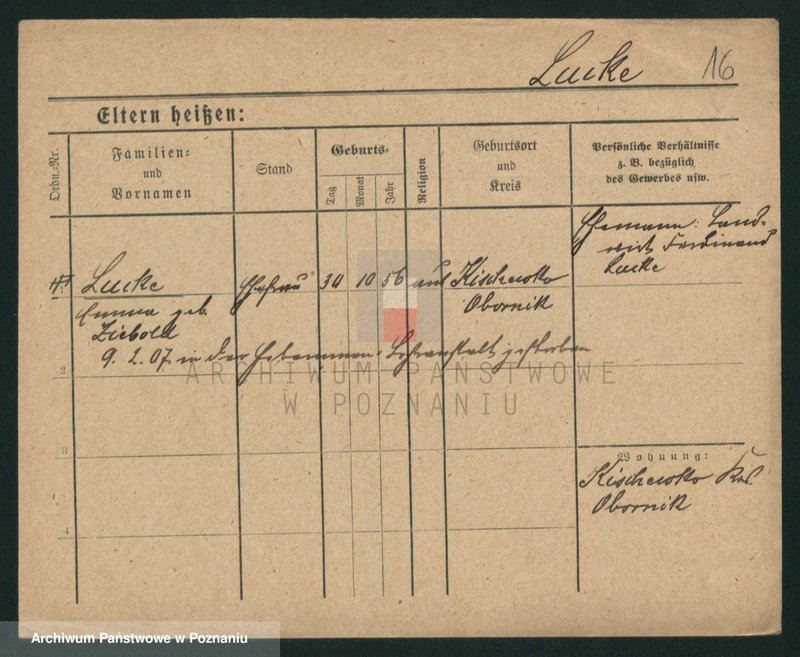 Lucke 16
Eltern heißen:
Ordn.-Nr.
Familien-
und
Vornamen
Stand
Geburts-
Tag
Monat
Jahr
Religion
Geburtsort
und
Kreis
Persönliche Verhältnisse
z. B. bezüglich
des Gewerbes usw.
Ehemann: Land-
wirt Ferdinand
Lucke
Lucke Ehefrau 30 10 56 Kischewko
Obornik
Emma geb.
Ziebold
9. 2. 07 in der Hebammen-Lehranstalt gestorben
2
3
4
ARCHIWUM PAŃSTWOWE
W POZNANIU
Wohnung:
Kischewko Krs.
Obornik
Archiwum Państwowe w Poznaniu